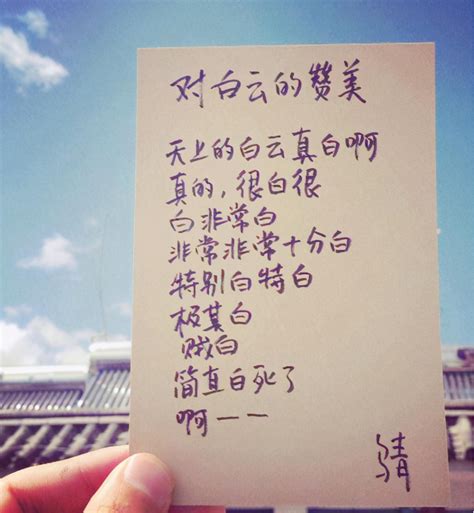 对白云的赞美
天上的白云真白啊
真的，很白很
白非常白
非常非常十分白
特别白特白
极其白
贼白
简直白死了
啊一一